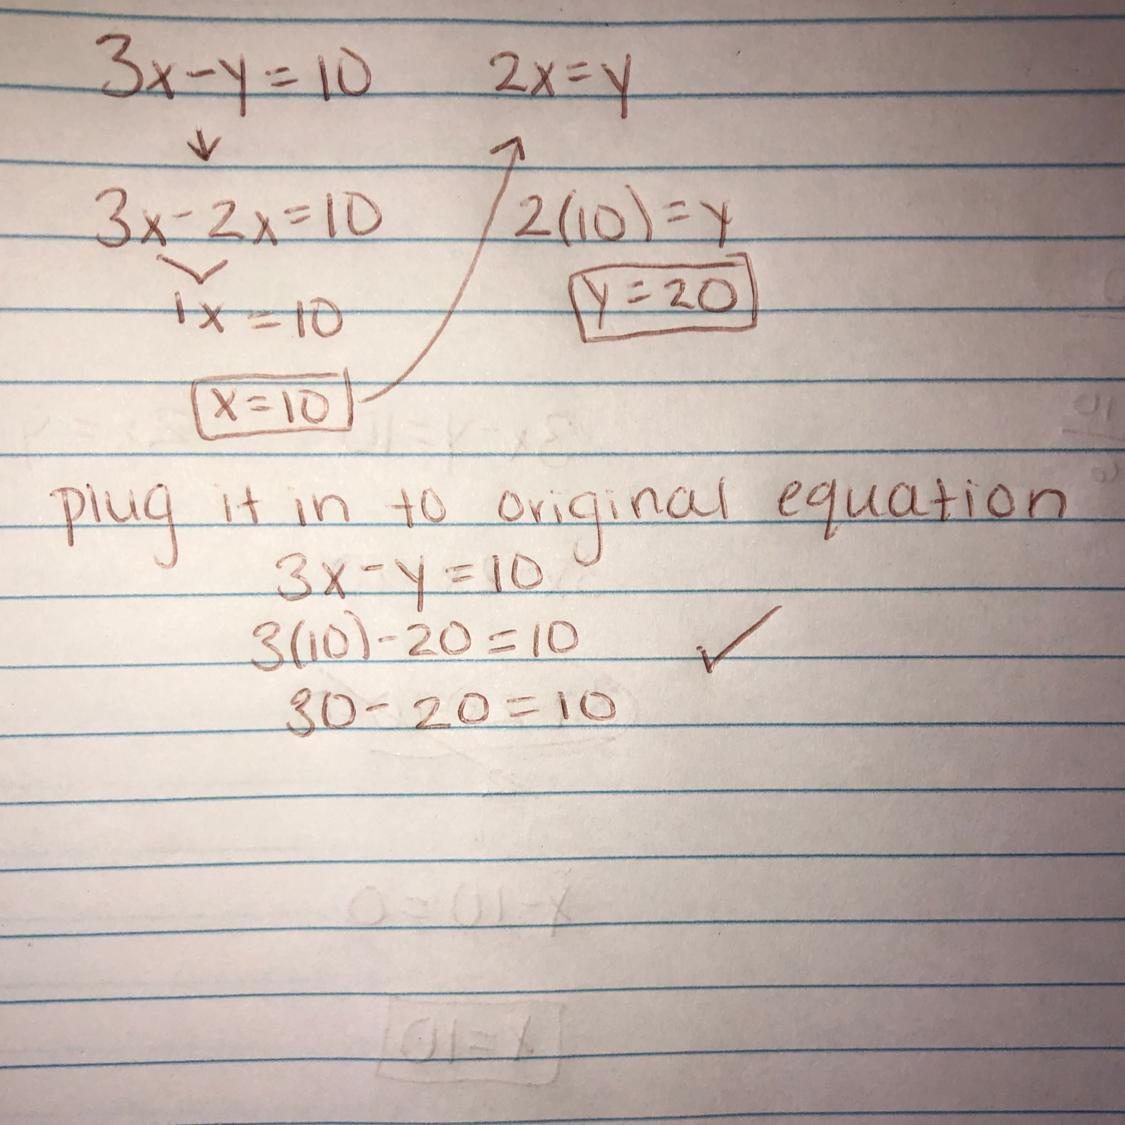 3x-y=10 2x=y
↓
3x-2x=10 2(10)=y
1x=10 y=20
x=10
plug it in to original equation
3x-y=10
3(10)-20=10 ✓
30-20=10
x-10=0
x=10